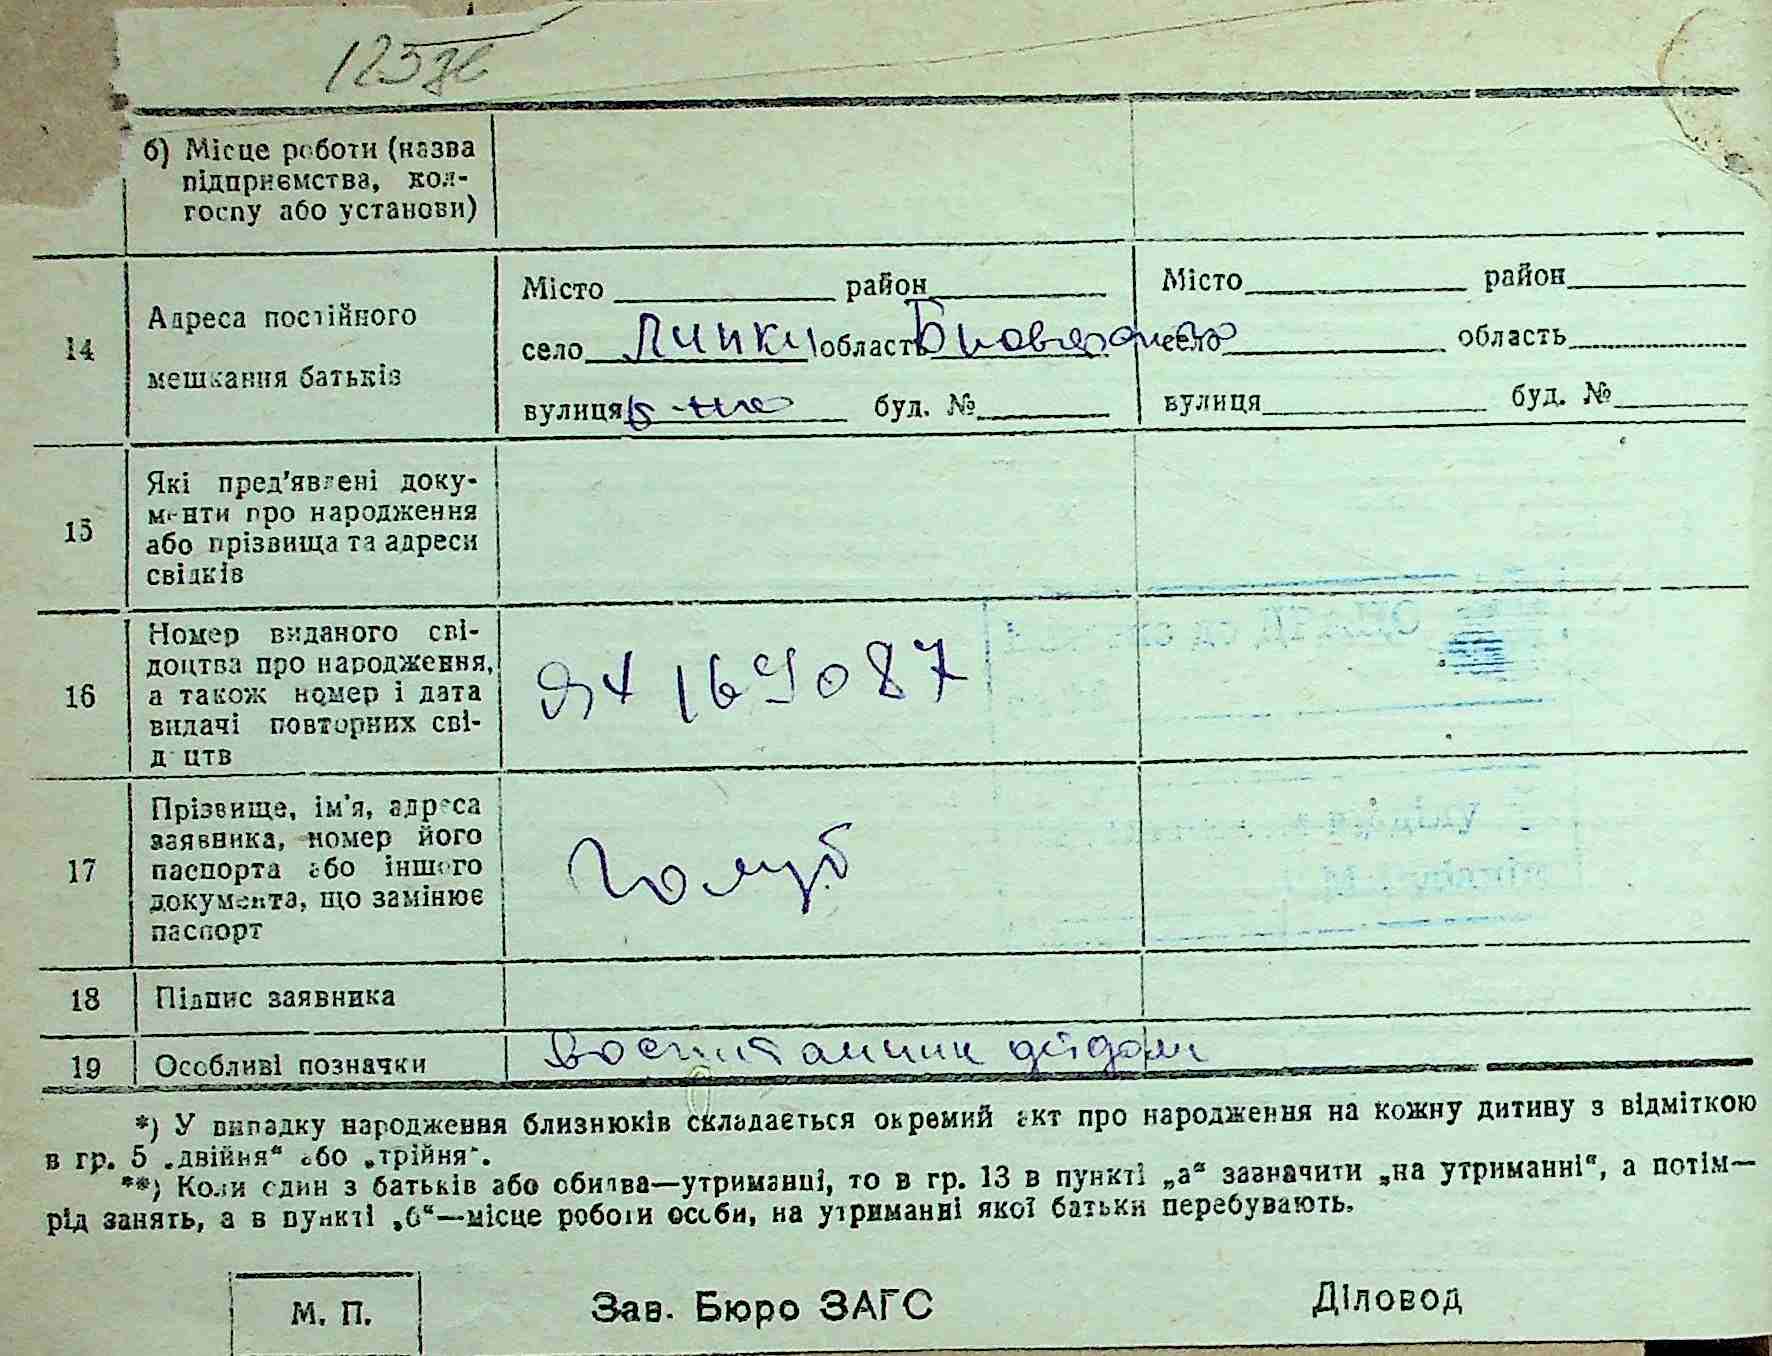 125
б) Місце роботи (назва
підприємства, кол-
госпу або установи)
14
Адреса постійного
мешкання батьків
Місто район
село Липки область
вулиця буд. №
Місто район
село область
вулиця буд. №
15
Які пред'явлені доку-
менти про народження
або прізвища та адреси
свідків
16
Номер виданого сві-
доцтва про народження,
а також номер і дата
видачі повторних сві-
доцтв
ЯЧ 169087
17
Прізвище, ім'я, адреса
заявника, номер його
паспорта або іншого
документа, що замінює
паспорт
Голуб
18
Підпис заявника
19
Особливі позначки
Воспитанник д/дома
*) У випадку народження близнюків складається окремий акт про народження на кожну дитину з відміткою
в гр. 5 „двійня“ або „трійня“.
**) Коли один з батьків або обидва—утриманці, то в гр. 13 в пункті „а“ зазначити „на утриманні“, а потім—
рід занять, а в пункті „б“—місце роботи особи, на утриманні якої батьки перебувають.
М. П.
Зав. Бюро ЗАГС
Діловод